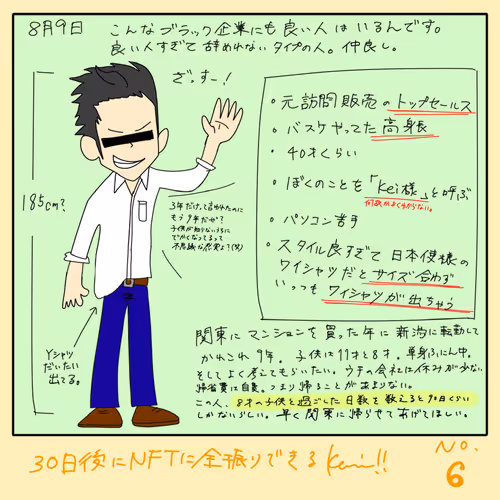 8月9日
こんなブラック企業にも良い人はいるんです。
良い人すぎて辞めれないタイプの人。仲良し。
ざっすー!
185cm?
・元訪問販売のトップセールス
・バスケやってた高身長
・40才くらい
・ぼくのことを「kei様」と呼ぶ
何故かよくわからない。
・パソコン苦手
・スタイル良すぎて日本仕様の
ワイシャツだとサイズ合わず
いっつもワイシャツが出ちゃう
3年だけって言われたのに
もう9年だぜ?
子供が知らないうちに
でかくなってるって
不思議な感覚よ?(笑)
Yシャツ
だいたい
出てる。
関東にマンションを買った年に新潟に転勤して
かれこれ9年。子供は11才と8才。単身ふにん中。
そしてよく考えてもらいたい。ウチの会社は休みが少ない
帰省費は自費。つまり帰ることがあまりない。
この人、8才の子供と過ごした日数を数えると90日くらい
しかないらしい。早く関東に帰らせてあげてほしい。
30日後にNFTに全振りできるKei!!
NO.
6